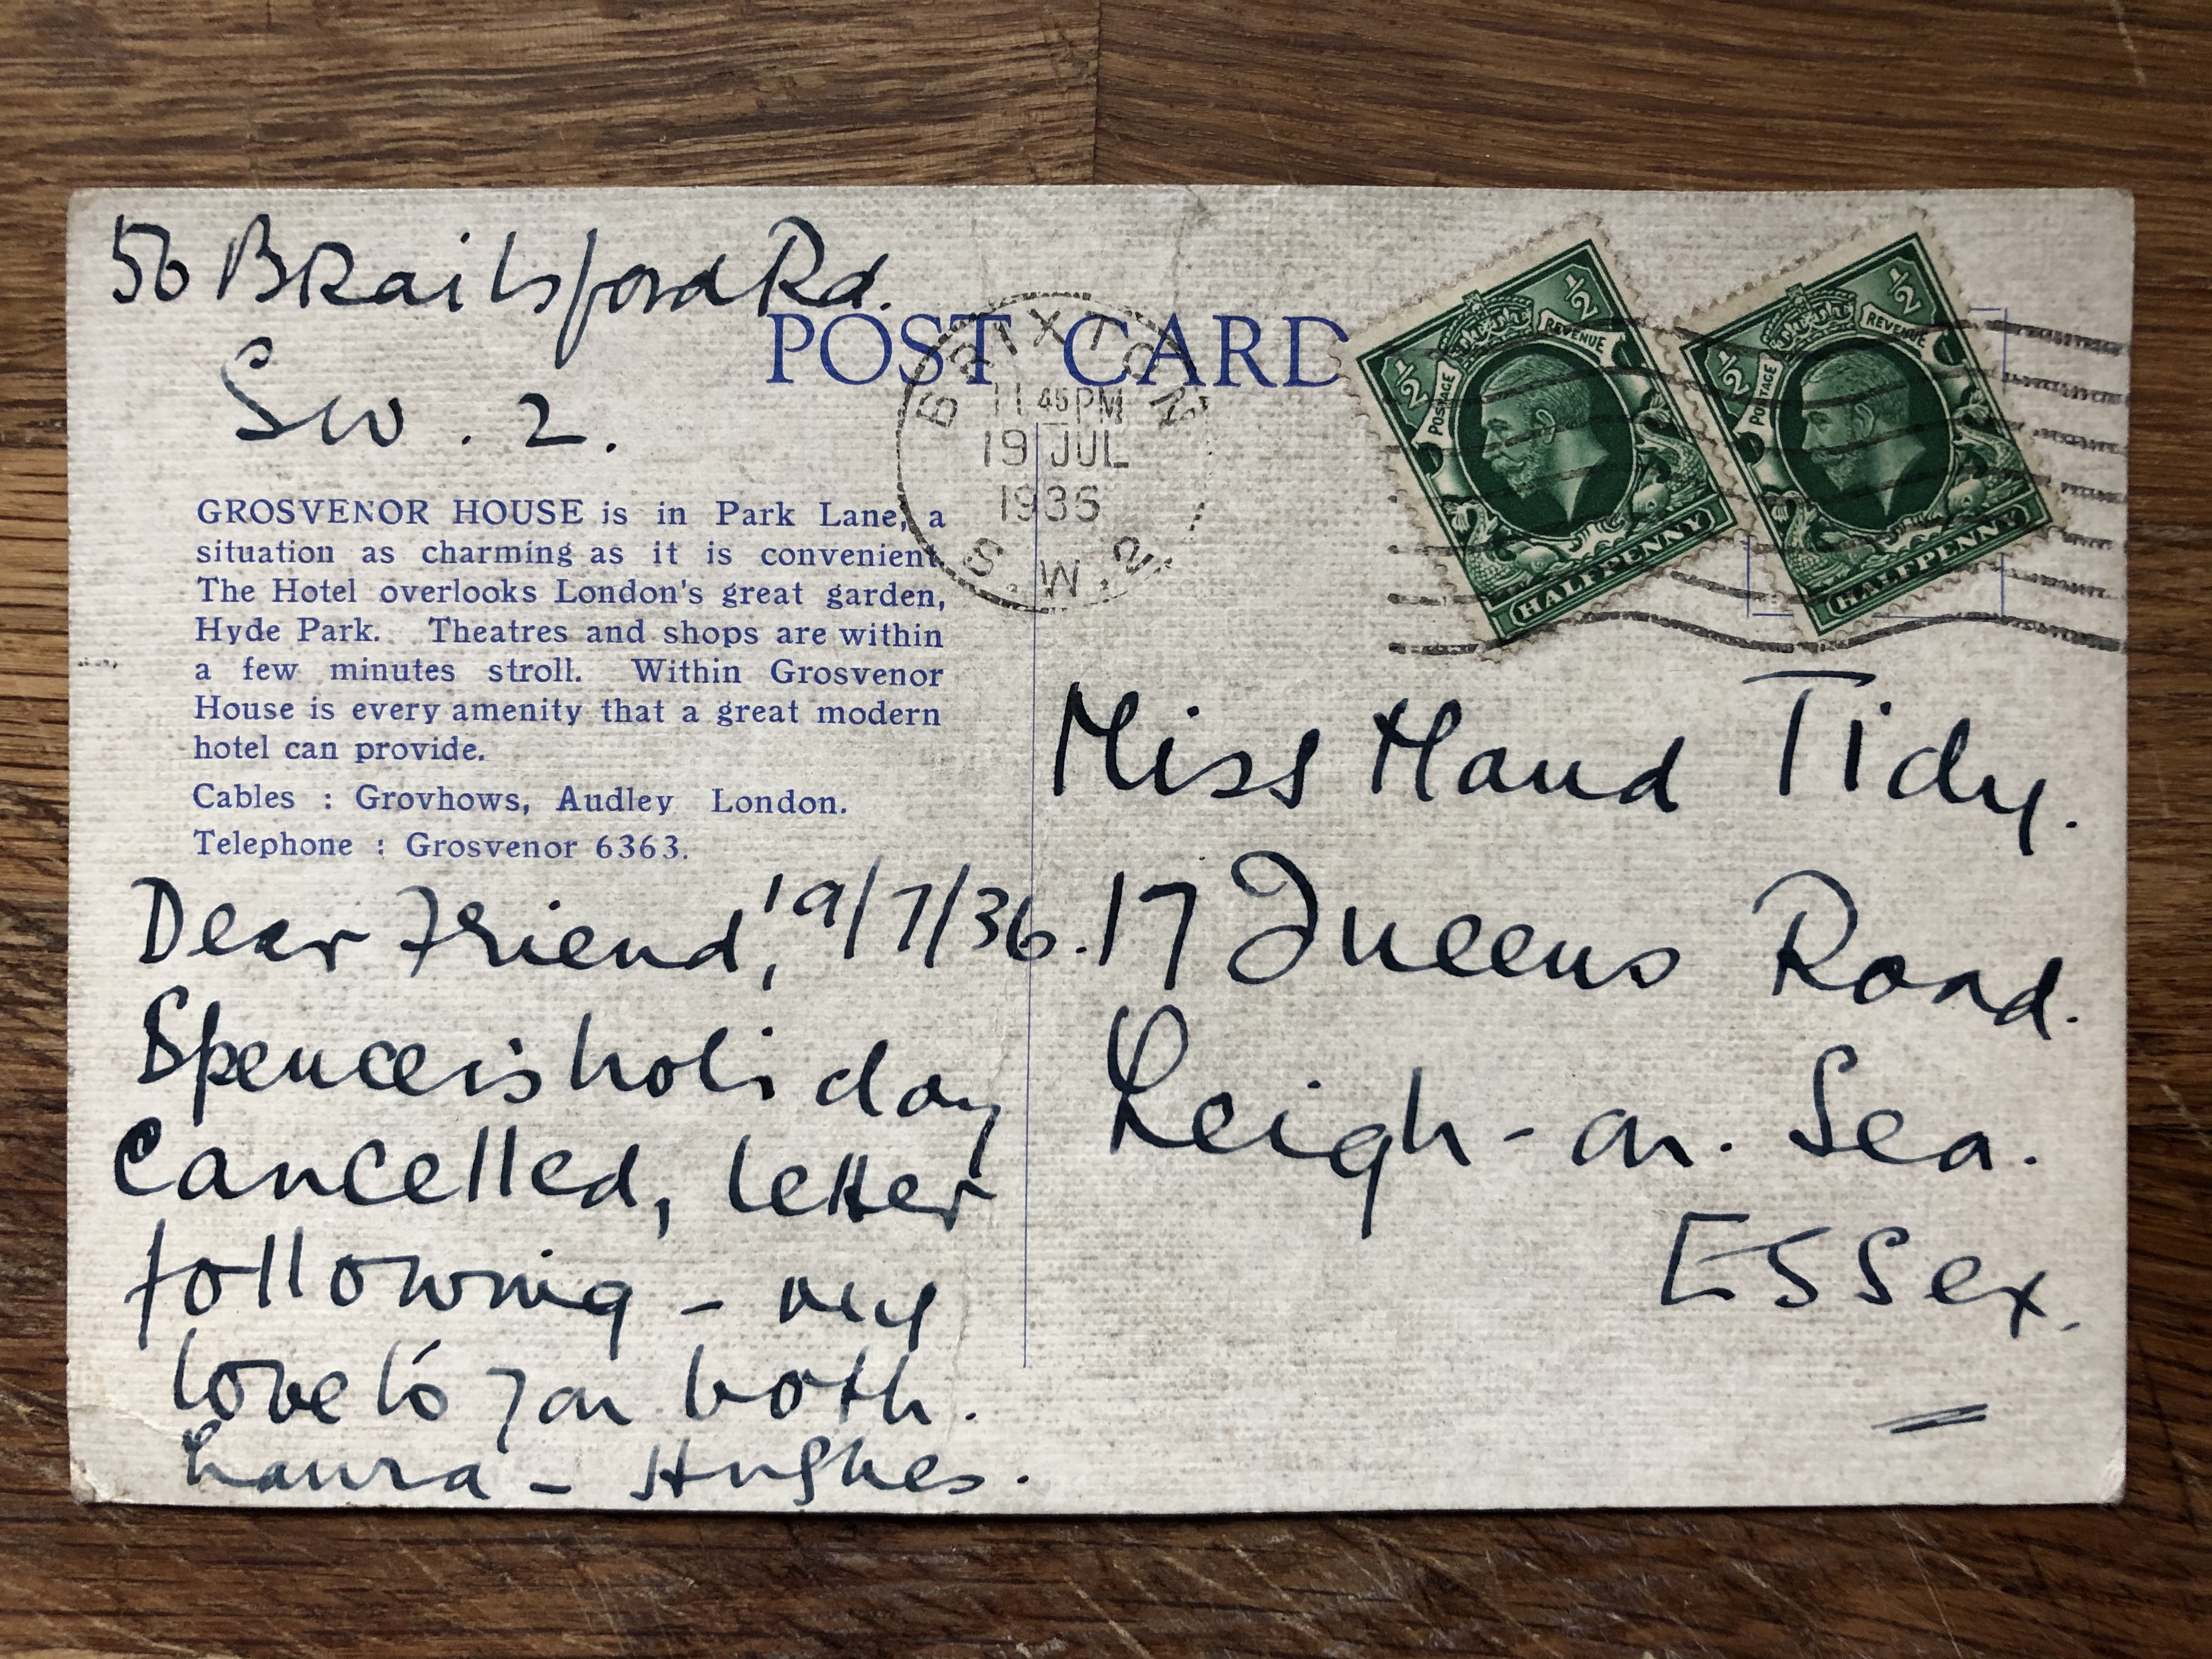 56 Brailsford Rd.
SW. 2.
POST CARD
BRIXTON
11 45 PM
19 JUL
1936
S.W.2.
½ ½
POSTAGE REVENUE
HALFPENNY
½ ½
POSTAGE REVENUE
HALFPENNY
GROSVENOR HOUSE is in Park Lane, a
situation as charming as it is convenient.
The Hotel overlooks London's great garden,
Hyde Park. Theatres and shops are within
a few minutes stroll. Within Grosvenor
House is every amenity that a great modern
hotel can provide.
Cables : Grovhows, Audley London.
Telephone : Grosvenor 6363.
Dear Friend, 19/7/36.
Spencer's holiday
Cancelled, letter
following - my
love to you both.
Laura - Hughes.
Miss Maud Tidy.
17 Queens Road.
Leigh-on-Sea.
ESSex.